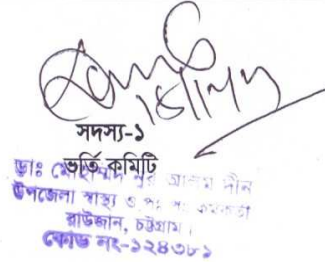 সদস্য-১
ভর্তি কমিটি
ডাঃ মোহাম্মদ নুর আলম দীন
উপজেলা স্বাস্থ্য ও পঃ পঃ কর্মকর্তা
রাউজান, চট্টগ্রাম।
কোড নং-১২৪৩৮১